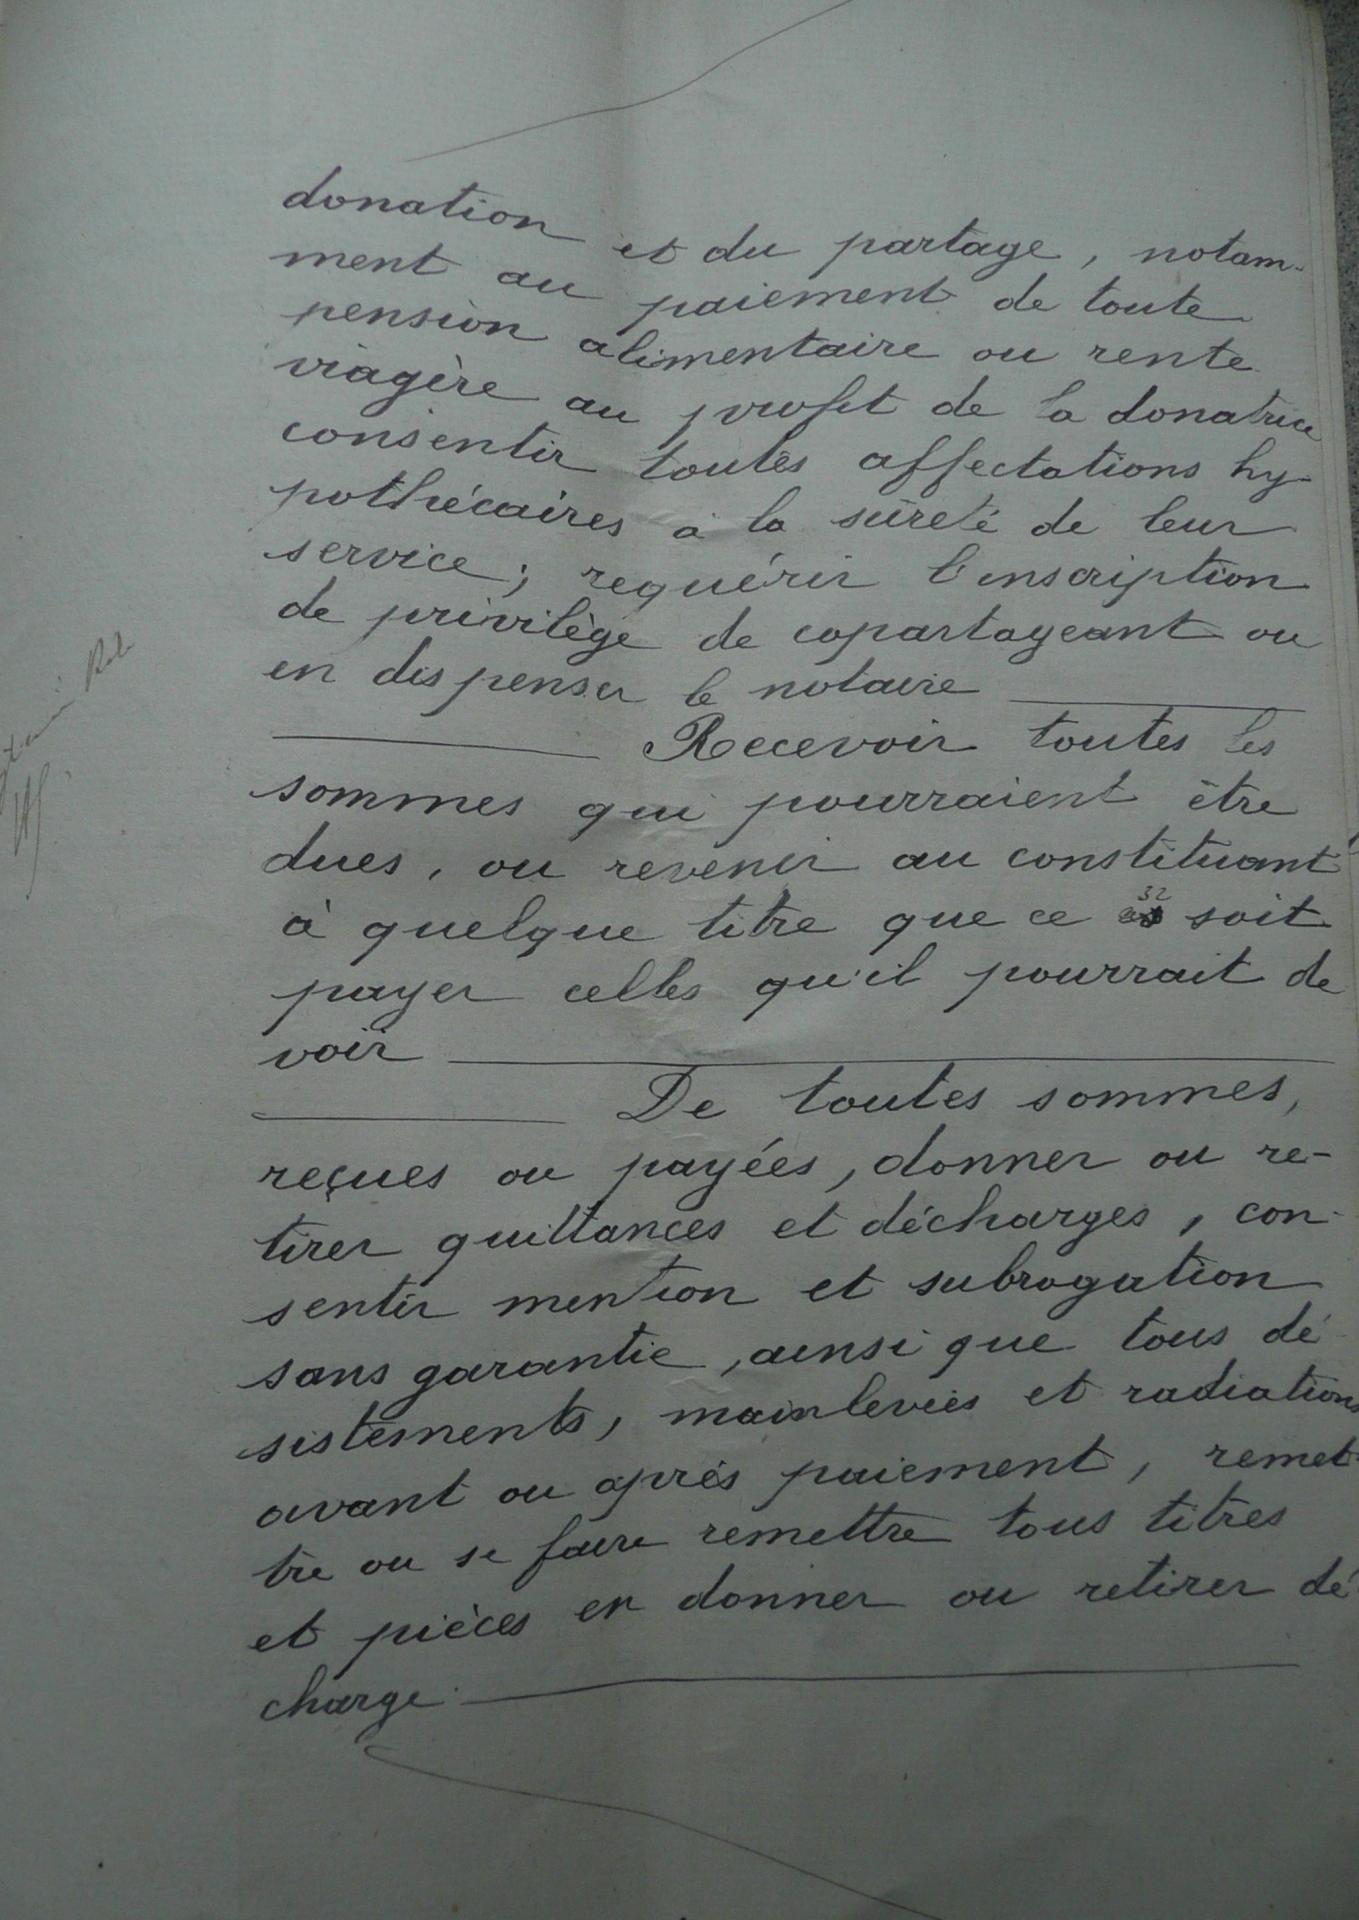 donation et du partage, notam-
ment au paiement de toute
pension alimentaire ou rente
viagère au profit de la donatrice
consentir toutes affectations hy-
pothécaires à la sûreté de leur
service; requérir l'inscription
de privilège de copartageant ou
en dispenser le notaire
Recevoir toutes les
sommes qui pourraient être
dues, ou revenir au constituant
à quelque titre que ce soit
payer celles qu'il pourrait de
voir
De toutes sommes,
reçues ou payées, donner ou re-
tirer quittances et décharges, con-
sentir mention et subrogation
sans garantie, ainsi que tous dé-
sistements, mainlevées et radiations
avant ou après paiement, remet-
tre ou se faire remettre tous titres
et pièces en donner ou retirer dé
charge.